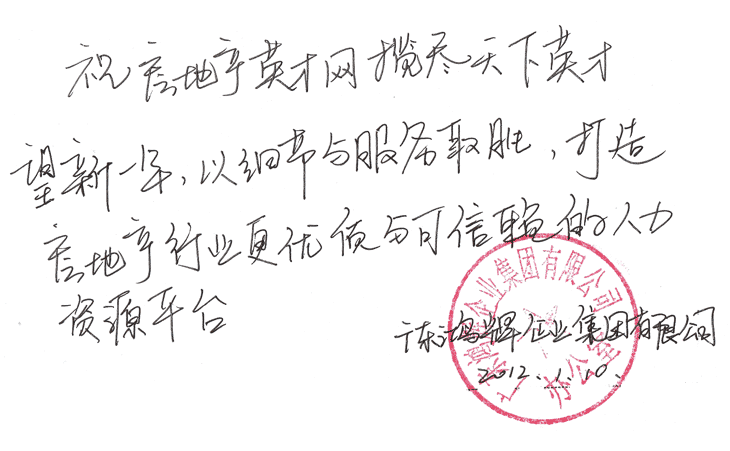 祝房地产英才网揽尽天下英才
望新一年,以细节与服务取胜,打造
房地产行业更优质与可信赖的人力
资源平台
广东鸿辉企业集团有限公司
2012.1.10.
企业集团有限公司
办公室